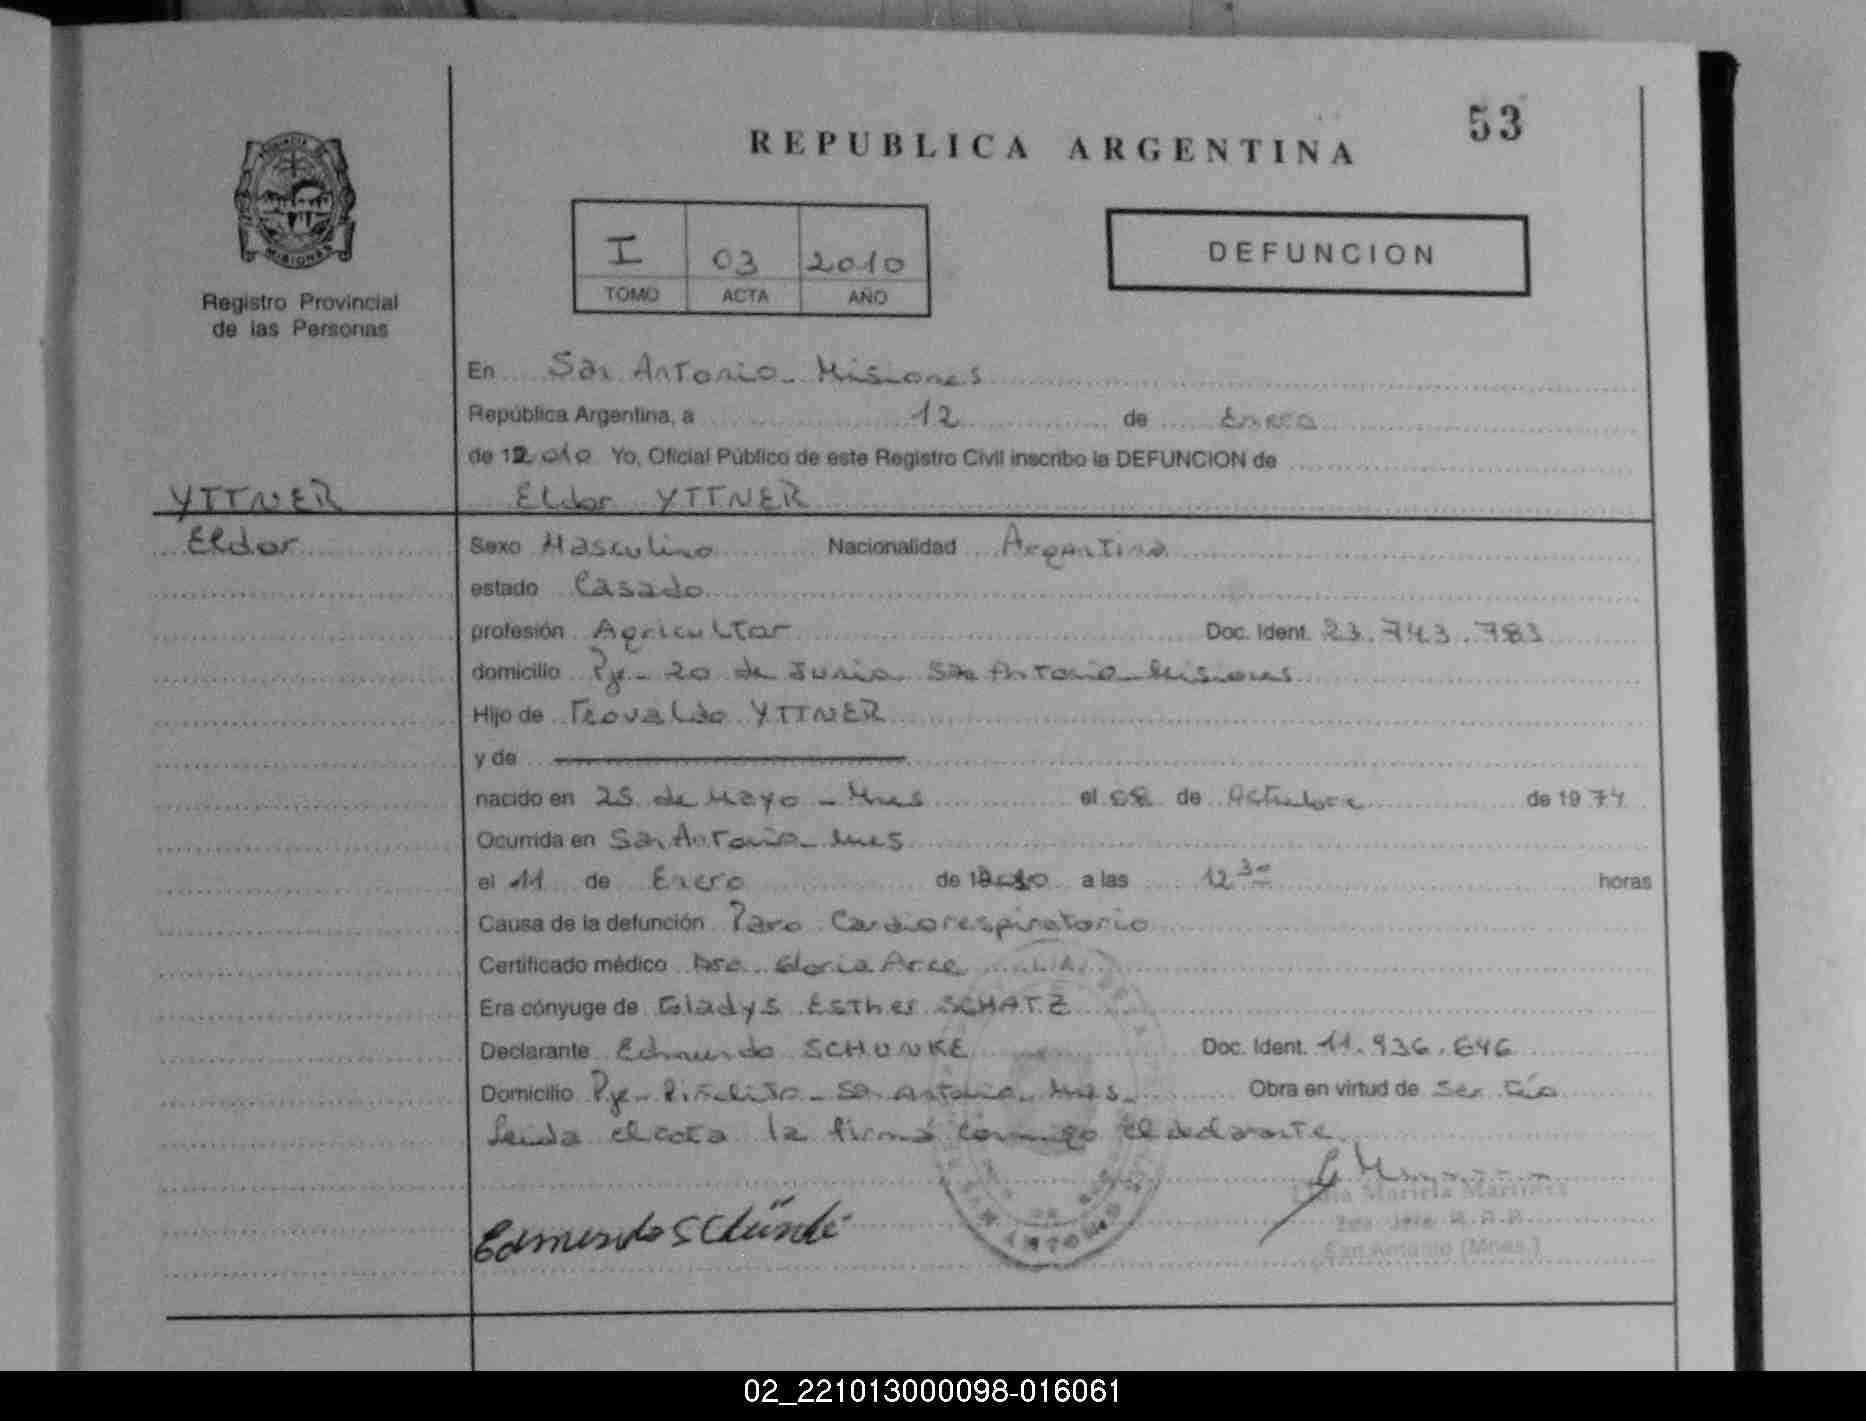 53
REPUBLICA ARGENTINA
PROVINCIA DE
MISIONES
Registro Provincial
de las Personas
I 03 2010
TOMO ACTA AÑO
DEFUNCION
En San Antonio - Misiones
República Argentina, a 12 de Enero
de 2010 Yo, Oficial Público de este Registro Civil inscribo la DEFUNCION de
YTTNER Eldor YTTNER
Eldor Sexo Masculino Nacionalidad Argentina
estado Casado
profesión Agricultor Doc. Ident. 23.743.783
domicilio Pje - 20 de Junio San Antonio - Misiones
Hijo de Teovaldo YTTNER
y de
nacido en 25 de Mayo - Mnes el 08 de Octubre de 1974
Ocurrida en San Antonio - Mnes
el 11 de Enero de 2010 a las 12 30 horas
Causa de la defunción Paro Cardiorespiratorio
Certificado médico Dra. Gloria Arce
Era cónyuge de Gladys Esther SCHATZ
Declarante Edmundo SCHUNKE Doc. Ident. 11.936.646
Domicilio Pje - Piñalito - San Antonio - Mnes - Obra en virtud de Ser Tío
Leida el acta la firma conmigo el declarante
Edmundo Schünke
Mariela Martinez
Jefe R.P.P.
San Antonio (Mnes.)
SAN ANTONIO
02_221013000098-016061